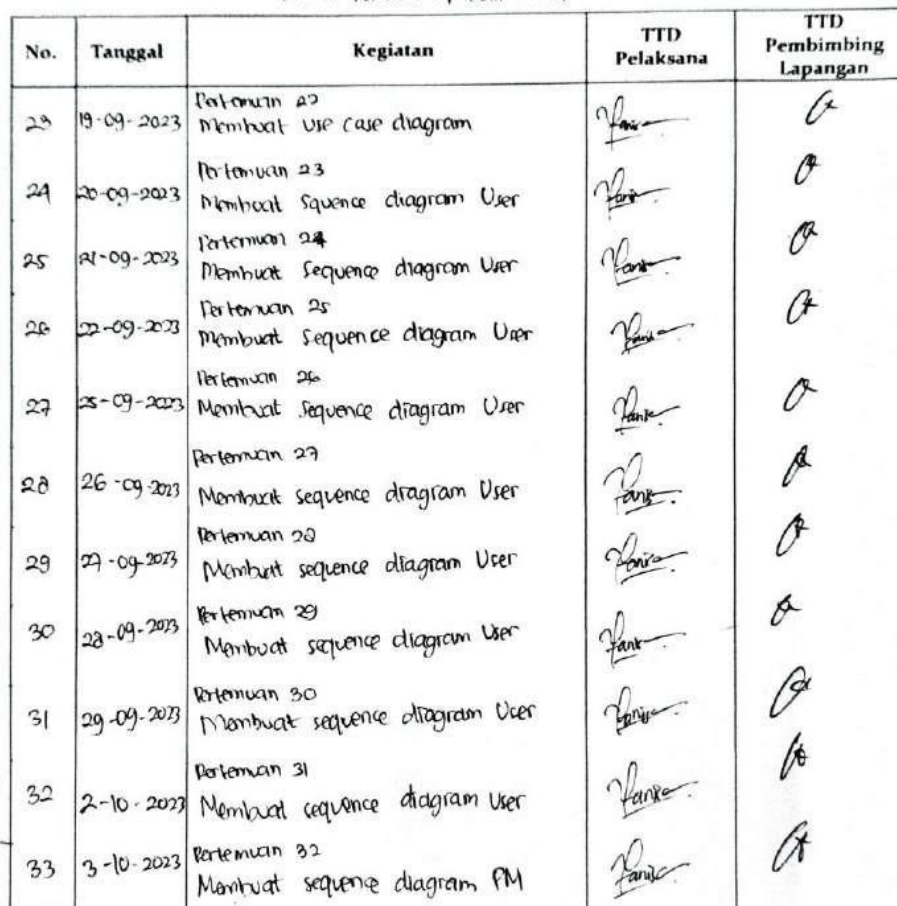 No. Tanggal Kegiatan TTD Pelaksana TTD Pembimbing Lapangan
23 19-09-2023 Pertemuan 22
Membuat use case diagram
24 20-09-2023 Pertemuan 23
Membuat Squence diagram User
25 21-09-2023 Pertemuan 24
Membuat Sequence diagram User
26 22-09-2023 Pertemuan 25
Membuat Sequence diagram User
27 25-09-2023 Pertemuan 26
Membuat Sequence diagram User
28 26-09-2023 Pertemuan 27
Membuat sequence diagram User
29 27-09-2023 Pertemuan 28
Membuat sequence diagram User
30 28-09-2023 Pertemuan 29
Membuat sequence diagram User
31 29-09-2023 Pertemuan 30
Membuat sequence diagram User
32 2-10-2023 Pertemuan 31
Membuat sequence diagram user
33 3-10-2023 Pertemuan 32
Membuat sequence diagram PM